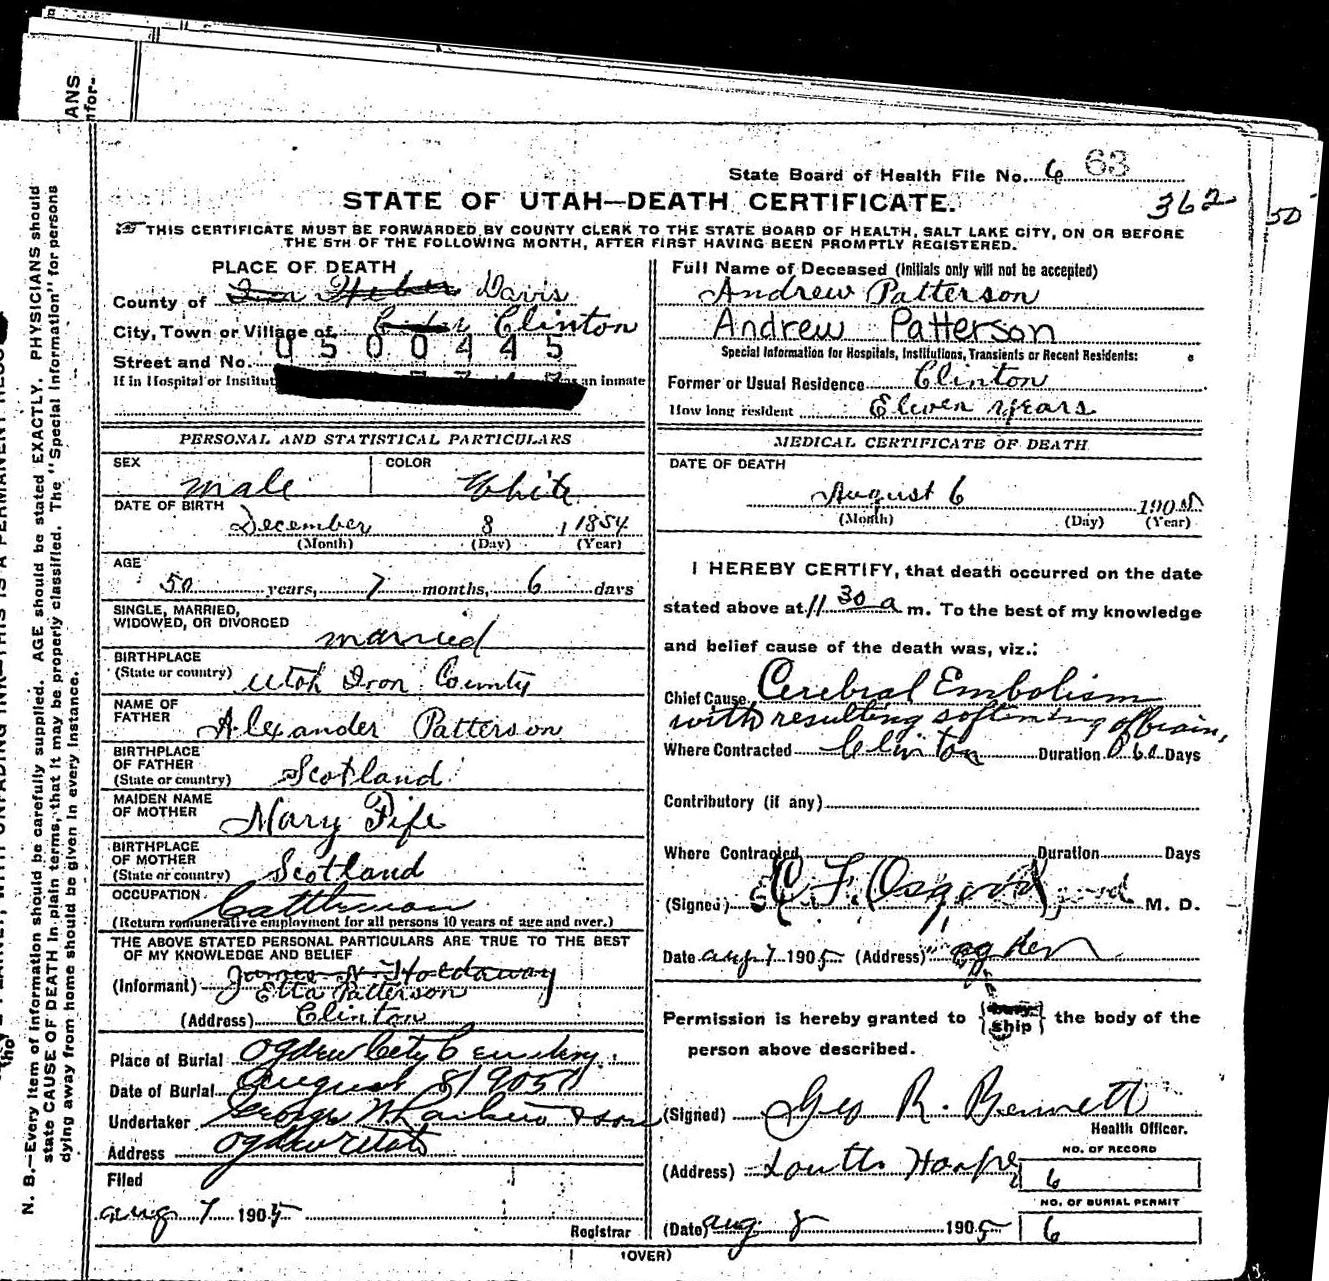 ANS
nfor-
State Board of Health File No. 6 63
362
50
STATE OF UTAH—DEATH CERTIFICATE.
THIS CERTIFICATE MUST BE FORWARDED BY COUNTY CLERK TO THE STATE BOARD OF HEALTH, SALT LAKE CITY, ON OR BEFORE
THE 5TH OF THE FOLLOWING MONTH, AFTER FIRST HAVING BEEN PROMPTLY REGISTERED.
PLACE OF DEATH
County of Davis
City, Town or Village of Clinton
Street and No. U 5 0 0 4 4 5
If in Hospital or Institut as an inmate
PERSONAL AND STATISTICAL PARTICULARS
SEX male COLOR White
DATE OF BIRTH
December 8 1 1854
(Month) (Day) (Year)
AGE
50 years, 7 months, 6 days
SINGLE, MARRIED,
WIDOWED, OR DIVORCED married
BIRTHPLACE
(State or country) Utah Iron County
NAME OF
FATHER Alexander Patterson
BIRTHPLACE
OF FATHER
(State or country) Scotland
MAIDEN NAME
OF MOTHER Mary Fife
BIRTHPLACE
OF MOTHER
(State or country) Scotland
OCCUPATION Cattleman
(Return remunerative employment for all persons 10 years of age and over.)
THE ABOVE STATED PERSONAL PARTICULARS ARE TRUE TO THE BEST
OF MY KNOWLEDGE AND BELIEF
(Informant) James N. Holdaway
Etta Patterson
(Address) Clinton
Place of Burial Ogden City Cemetery.
Date of Burial August 8 1905
Undertaker George W. Larkin & son
Address Ogden Utah
Filed
aug 7 1905
Registrar
Full Name of Deceased (Initials only will not be accepted)
Andrew Patterson
Andrew Patterson
Special Information for Hospitals, Institutions, Transients or Recent Residents:
Former or Usual Residence Clinton
How long resident Eleven years
MEDICAL CERTIFICATE OF DEATH
DATE OF DEATH
August 6 1905
(Month) (Day) (Year)
I HEREBY CERTIFY, that death occurred on the date
stated above at 11 30 a m. To the best of my knowledge
and belief cause of the death was, viz.:
Chief Cause Cerebral Embolism
with resulting softening of brain,
Where Contracted Clinton Duration Days
Contributory (if any)
Where Contracted Duration Days
(Signed) C. F. Osgood M. D.
Date aug 7 1905 (Address) ogden
Permission is hereby granted to { ship } the body of the
person above described.
(Signed) Geo R. Bennett
Health Officer.
(Address) South Hooper
NO. OF RECORD
6
NO. OF BURIAL PERMIT
6
(Date) aug 8 1905
(OVER)
N. B.—Every item of information should be carefully supplied. AGE should be stated EXACTLY. PHYSICIANS should
state CAUSE OF DEATH in plain terms, that it may be properly classified. The "Special Information" for persons
dying away from home should be given in every instance.